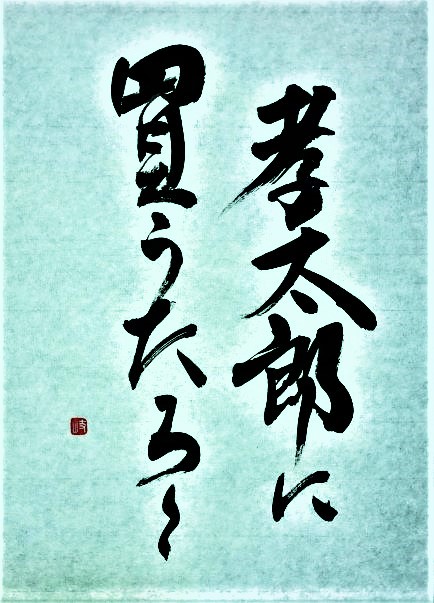 孝太郎に
買うたろ〜